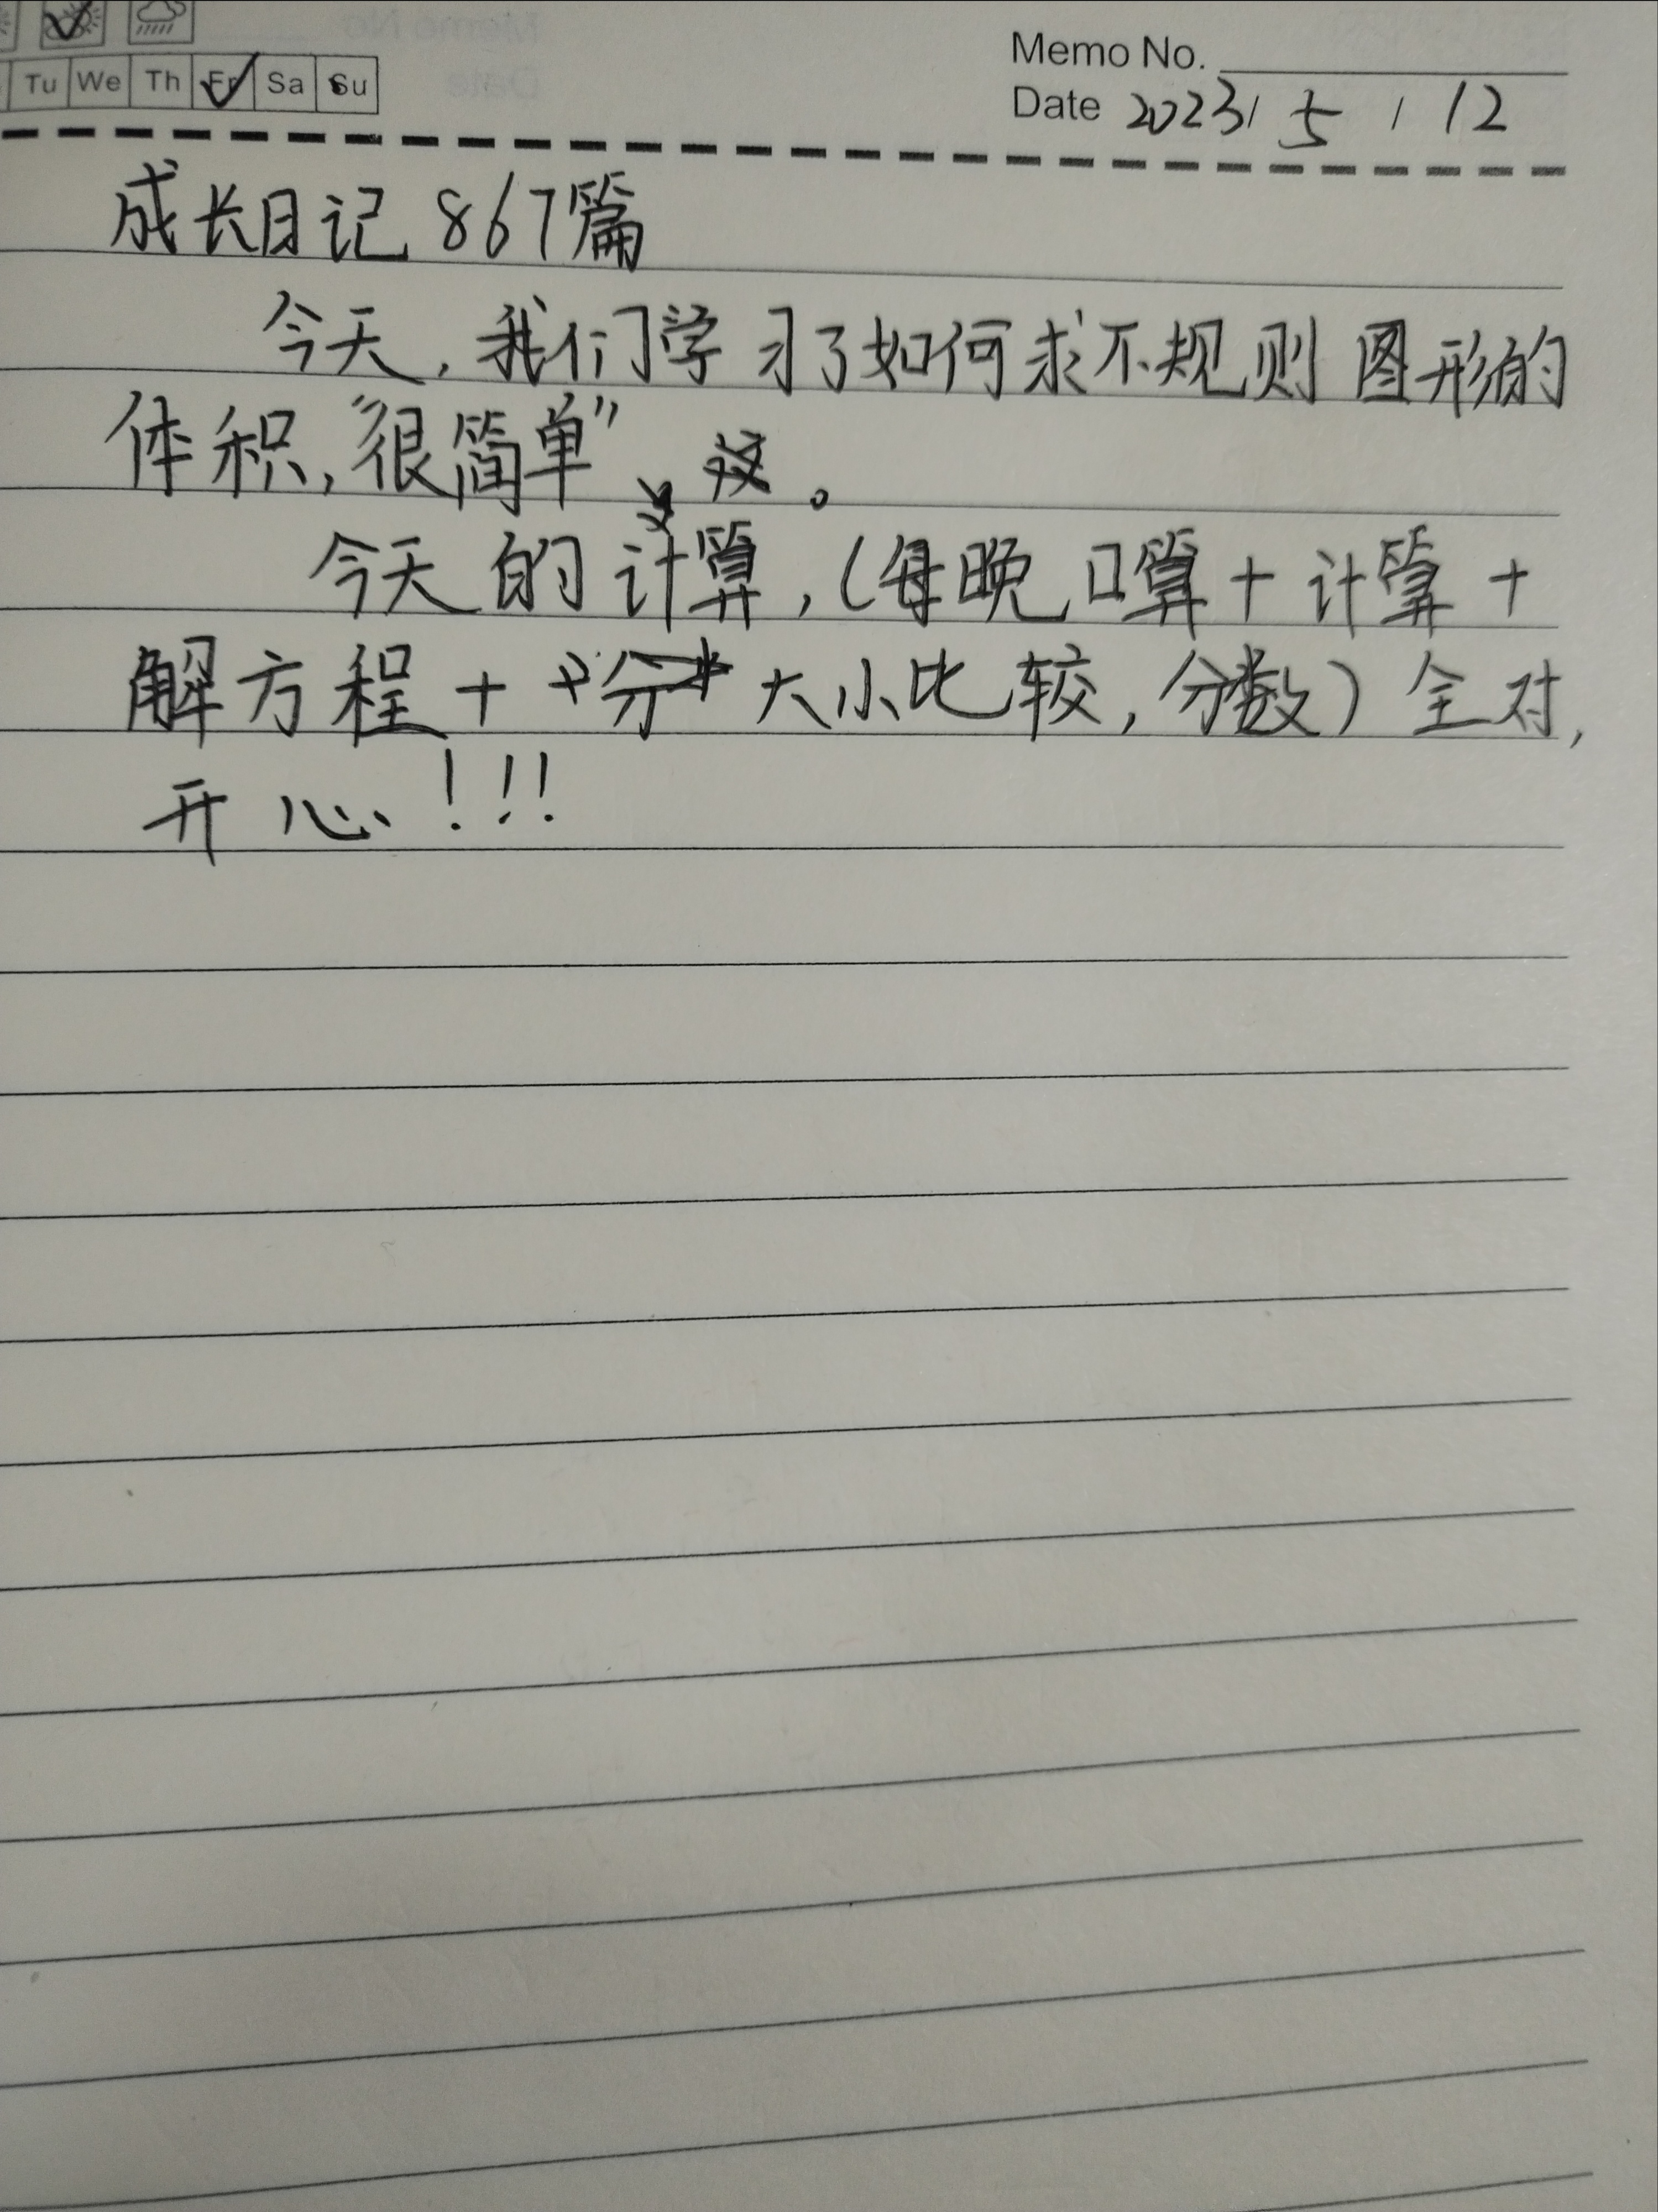 Memo No.
Tu We Th Fr Sa Su
Date 2023/ 5 / 12
成长日记 867篇
今天，我们学习了如何求不规则图形的
体积，“很简单” 。
今天的计算，（每晚口算+计算+
解方程+ 大小比较，分数）全对，
开心！！！